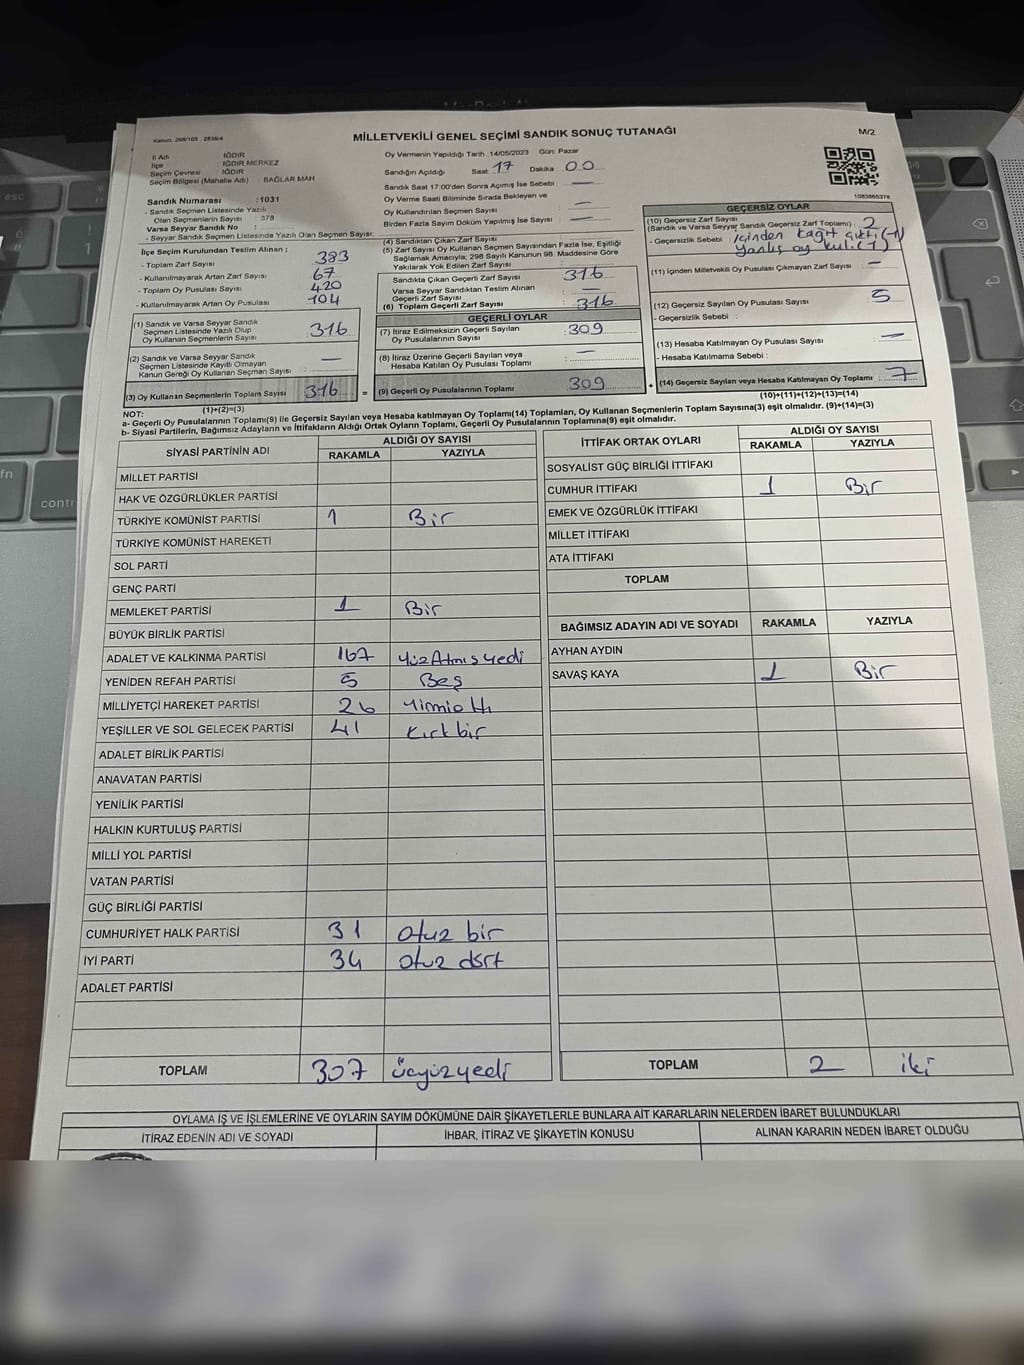 Kanun, 298/105 , 2839/4
MİLLETVEKİLİ GENEL SEÇİMİ SANDIK SONUÇ TUTANAĞI
M/2
İl Adı IĞDIR
İlçe IĞDIR MERKEZ
Seçim Çevresi IĞDIR
Seçim Bölgesi (Mahalle Adı) BAĞLAR MAH
Sandık Numarası :1031
- Sandık Seçmen Listesinde Yazılı
Olan Seçmenlerin Sayısı : 378
Varsa Seyyar Sandık No :
- Seyyar Sandık Seçmen Listesinde Yazılı Olan Seçmen Sayısı:
İlçe Seçim Kurulundan Teslim Alınan ;
- Toplam Zarf Sayısı 383
- Kullanılmayarak Artan Zarf Sayısı 67
- Toplam Oy Pusulası 420
- Kullanılmayarak Artan Oy Pusulası 104
(1) Sandık ve Varsa Seyyar Sandık
Seçmen Listesinde Yazılı Olup
Oy Kullanan Seçmenlerin Sayısı 316
(2) Sandık ve Varsa Seyyar Sandık
Seçmen Listesinde Kayıtlı Olmayan
Kanun Gereği Oy Kullanan Seçmen Sayısı —
(3) Oy Kullanan Seçmenlerin Toplam Sayısı 316 =
(1)+(2)=(3)
Oy Vermenin Yapıldığı Tarih :14/05/2023 Gün: Pazar
Sandığın Açıldığı Saat: 17 Dakika : 00
Sandık Saat 17:00'den Sonra Açımış İse Sebebi : —
Oy Verme Saati Bitiminde Sırada Bekleyen ve
Oy Kullandırılan Seçmen Sayısı : —
Birden Fazla Sayım Döküm Yapılmış İse Sayısı : —
(4) Sandıktan Çıkan Zarf Sayısı
(5) Zarf Sayısı Oy Kullanan Seçmen Sayısından Fazla İse, Eşitliği
Sağlamak Amacıyla; 298 Sayılı Kanunun 98. Maddesine Göre
Yakılarak Yok Edilen Zarf Sayısı
Sandıkta Çıkan Geçerli Zarf Sayısı 316
Varsa Seyyar Sandıktan Teslim Alınan
Geçerli Zarf Sayısı : —
(6) Toplam Geçerli Zarf Sayısı : 316
GEÇERLİ OYLAR
(7) İtiraz Edilmeksizin Geçerli Sayılan
Oy Pusulalarının Sayısı : 309
(8) İtiraz Üzerine Geçerli Sayılan veya
Hesaba Katılan Oy Pusulası Toplamı : —
(9) Geçerli Oy Pusulalarının Toplamı 309 +
1083865378
GEÇERSİZ OYLAR
(10) Geçersiz Zarf Sayısı
(Sandık ve Varsa Seyyar Sandık Geçersiz Zarf Toplamı) : 2
- Geçersizlik Sebebi : içinden kağıt çıktı (1)
yanlış oy kul.(1)
(11) İçinden Milletvekili Oy Pusulası Çıkmayan Zarf Sayısı : —
(12) Geçersiz Sayılan Oy Pusulası Sayısı 5
- Geçersizlik Sebebi :
(13) Hesaba Katılmayan Oy Pusulası Sayısı : —
- Hesaba Katılmama Sebebi :
(14) Geçersiz Sayılan veya Hesaba Katılmayan Oy Toplamı : 7
(10)+(11)+(12)+(13)=(14)
NOT:
a- Geçerli Oy Pusulalarının Toplamı(9) ile Geçersiz Sayılan veya Hesaba katılmayan Oy Toplamı(14) Toplamları, Oy Kullanan Seçmenlerin Toplam Sayısına(3) eşit olmalıdır. (9)+(14)=(3)
b- Siyasi Partilerin, Bağımsız Adayların ve İttifakların Aldığı Ortak Oyların Toplamı, Geçerli Oy Pusulalarının Toplamına(9) eşit olmalıdır.
SİYASİ PARTİNİN ADI ALDIĞI OY SAYISI
RAKAMLA YAZIYLA
MİLLET PARTİSİ
HAK VE ÖZGÜRLÜKLER PARTİSİ
TÜRKİYE KOMÜNİST PARTİSİ 1 Bir
TÜRKİYE KOMÜNİST HAREKETİ
SOL PARTİ
GENÇ PARTİ
MEMLEKET PARTİSİ 1 Bir
BÜYÜK BİRLİK PARTİSİ
ADALET VE KALKINMA PARTİSİ 167 YüzAtmışyedi
YENİDEN REFAH PARTİSİ 5 Beş
MİLLİYETÇİ HAREKET PARTİSİ 26 Yirmialtı
YEŞİLLER VE SOL GELECEK PARTİSİ 41 Kırkbir
ADALET BİRLİK PARTİSİ
ANAVATAN PARTİSİ
YENİLİK PARTİSİ
HALKIN KURTULUŞ PARTİSİ
MİLLİ YOL PARTİSİ
VATAN PARTİSİ
GÜÇ BİRLİĞİ PARTİSİ
CUMHURİYET HALK PARTİSİ 31 otuz bir
İYİ PARTİ 34 otuz dört
ADALET PARTİSİ
TOPLAM 307 üçyüzyedi
İTTİFAK ORTAK OYLARI ALDIĞI OY SAYISI
RAKAMLA YAZIYLA
SOSYALİST GÜÇ BİRLİĞİ İTTİFAKI
CUMHUR İTTİFAKI 1 Bir
EMEK VE ÖZGÜRLÜK İTTİFAKI
MİLLET İTTİFAKI
ATA İTTİFAKI
TOPLAM
BAĞIMSIZ ADAYIN ADI VE SOYADI RAKAMLA YAZIYLA
AYHAN AYDIN
SAVAŞ KAYA 1 Bir
TOPLAM 2 iki
OYLAMA İŞ VE İŞLEMLERİNE VE OYLARIN SAYIM DÖKÜMÜNE DAİR ŞİKAYETLERLE BUNLARA AİT KARARLARIN NELERDEN İBARET BULUNDUKLARI
İTİRAZ EDENİN ADI VE SOYADI İHBAR, İTİRAZ VE ŞİKAYETİN KONUSU ALINAN KARARIN NEDEN İBARET OLDUĞU
esc
fn
contr